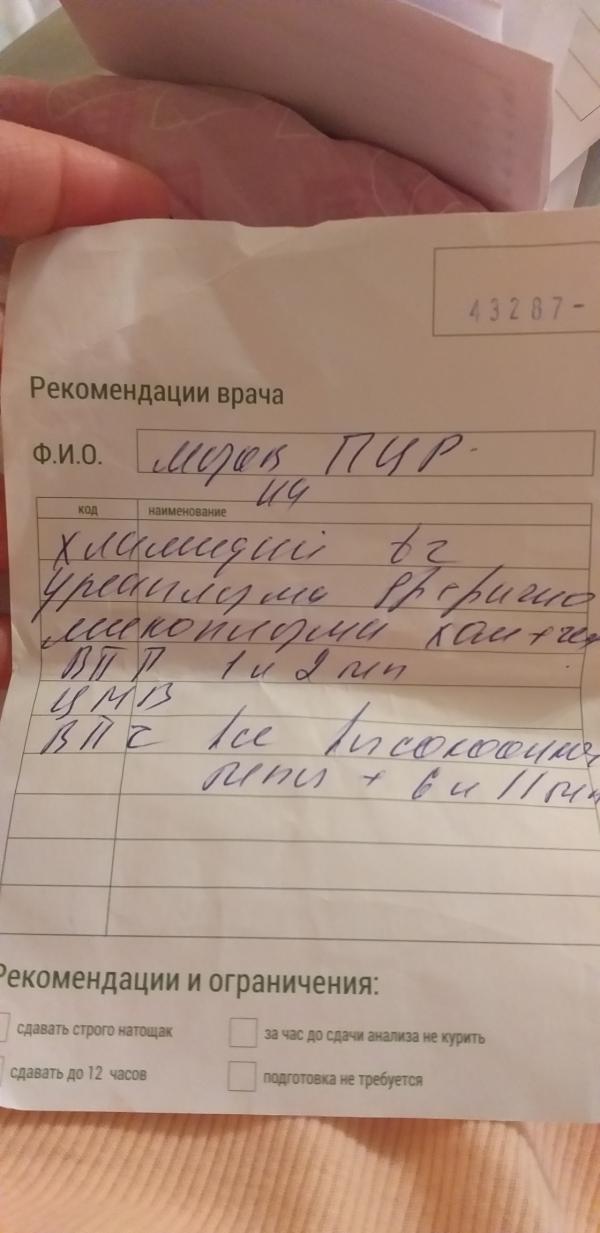 43287-
Рекомендации врача
Ф.И.О.
мазок ПЦР
на
код наименование
хламидии
уреаплазма
микоплазма
ВПГ 1 и 2 тип
ЦМВ
ВПЧ все
типы + 6 и 11 тип
Рекомендации и ограничения:
сдавать строго натощак
за час до сдачи анализа не курить
сдавать до 12 часов
подготовка не требуется